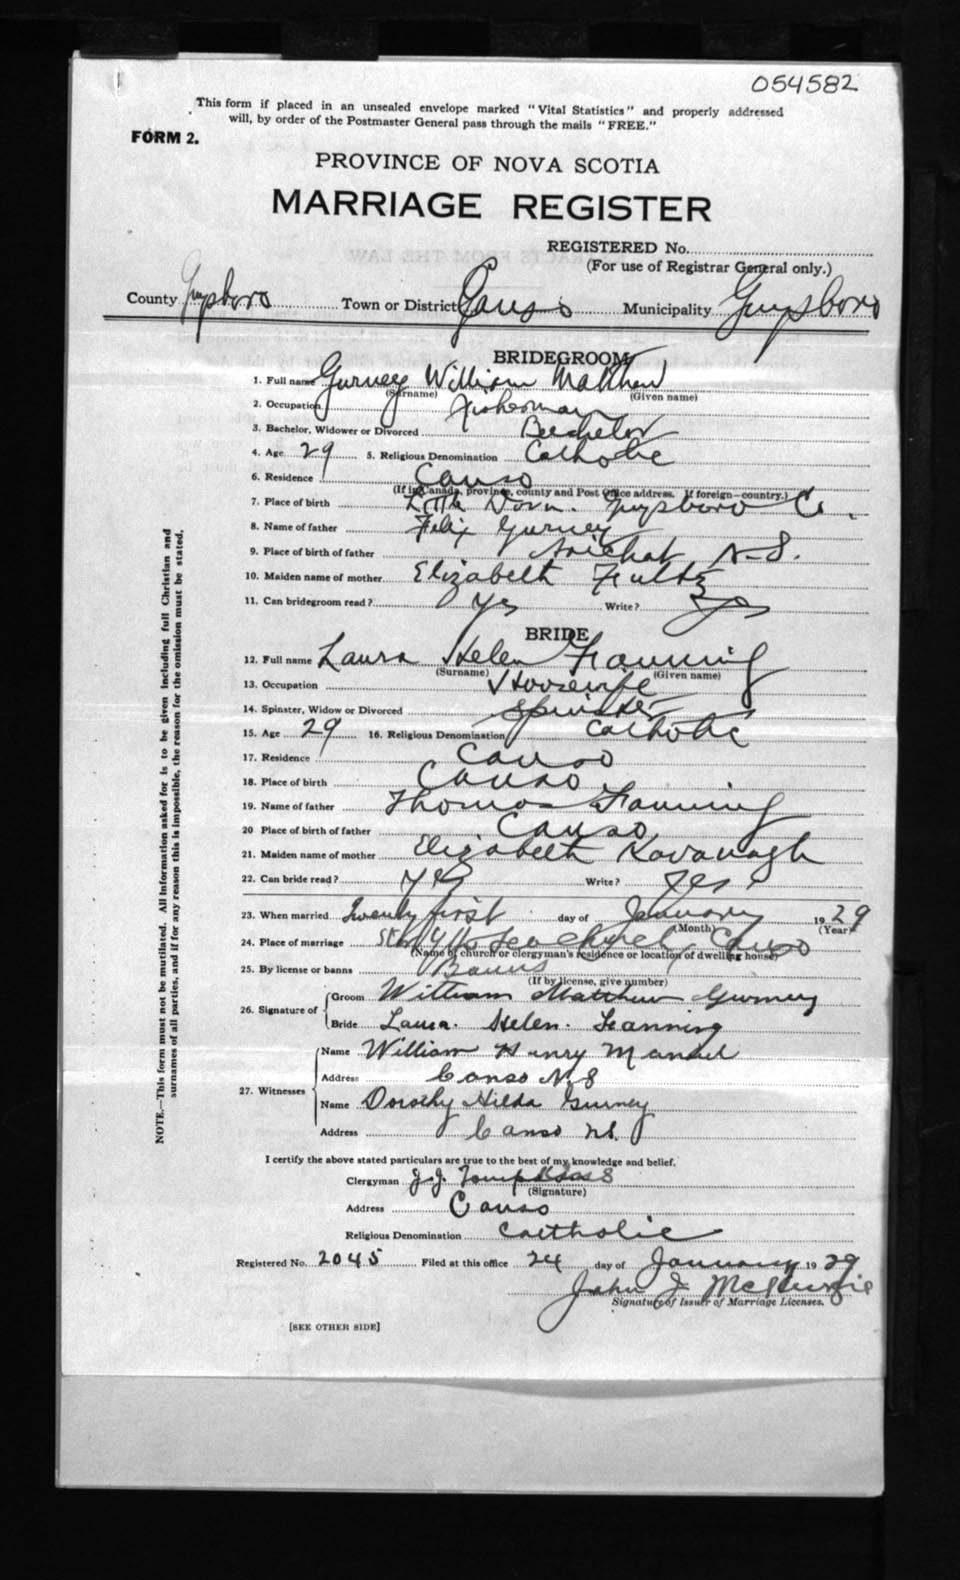 054582
This form if placed in an unsealed envelope marked "Vital Statistics" and properly addressed
will, by order of the Postmaster General pass through the mails "FREE."
FORM 2.
PROVINCE OF NOVA SCOTIA
MARRIAGE REGISTER
REGISTERED No.
(For use of Registrar General only.)
County Guysboro Town or District Canso Municipality Guysboro
BRIDEGROOM
1. Full name Gurney William Matthew
(Surname) (Given name)
2. Occupation Fisherman
3. Bachelor, Widower or Divorced Bachelor
4. Age 29 5. Religious Denomination Catholic
6. Residence Canso
(If in Canada, province, county and Post Office address. If foreign—country.)
7. Place of birth Little Dover. Guysboro Co.
8. Name of father Felix Gurney
9. Place of birth of father Arichat N-S.
10. Maiden name of mother Elizabeth Fultz
11. Can bridegroom read? Yes Write? Yes
BRIDE
12. Full name Laura Helen Fanning
(Surname) (Given name)
13. Occupation Housewife
14. Spinster, Widow or Divorced Spinster
15. Age 29 16. Religious Denomination Catholic
17. Residence Canso
18. Place of birth Canso
19. Name of father Thomas Fanning
20 Place of birth of father Canso
21. Maiden name of mother Elizabeth Kavanagh
22. Can bride read? Yes Write? Yes
23. When married Twenty first day of January 1929
(Month) (Year)
24. Place of marriage Canso
(Name of church or clergyman's residence or location of dwelling house)
25. By license or banns Banns
(If by license, give number)
26. Signature of Groom William Matthew Gurney
Bride Laura. Helen. Fanning
27. Witnesses Name William Henry
Address Canso N.S
Name Dorothy Hilda Gurney
Address Canso NS.
I certify the above stated particulars are true to the best of my knowledge and belief.
Clergyman J.J. Tompkins
(Signature)
Address Canso
Religious Denomination Catholic
Registered No. 2045 Filed at this office 24 day of January 1929
John J
Signature of Issuer of Marriage Licenses.
[SEE OTHER SIDE]
NOTE.—This form must not be mutilated. All information asked for is to be given including full Christian and
surnames of all parties, and if for any reason this is impossible, the reason for the omission must be stated.